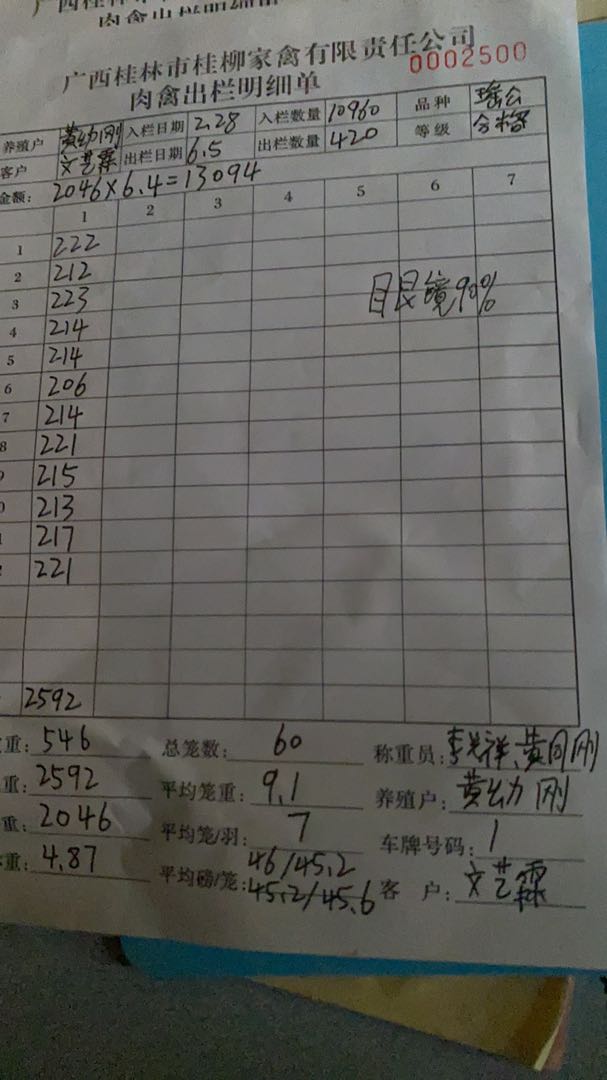 广西桂林市桂柳家禽有限责任公司
肉禽出栏明细单
0002500
养殖户 黄幼刚 入栏日期 2.28 入栏数量 10960 品种 瑶公
客户 文艺霖 出栏日期 6.5 出栏数量 420 等级 合格
金额: 2046×6.4=13094
1 2 3 4 5 6 7
1 222
2 212
3 223 目艮镜90%
4 214
5 214
6 206
7 214
8 221
215
213
217
221
2592
重: 546 总笼数: 60 称重员: 李 祥、黄同刚
重: 2592 平均笼重: 9.1 养殖户: 黄幼刚
重: 2046 平均笼/羽: 7 车牌号码: 1
重: 4.87 平均磅/笼: 46/45.2
45.2/45.6 客 户: 文艺霖